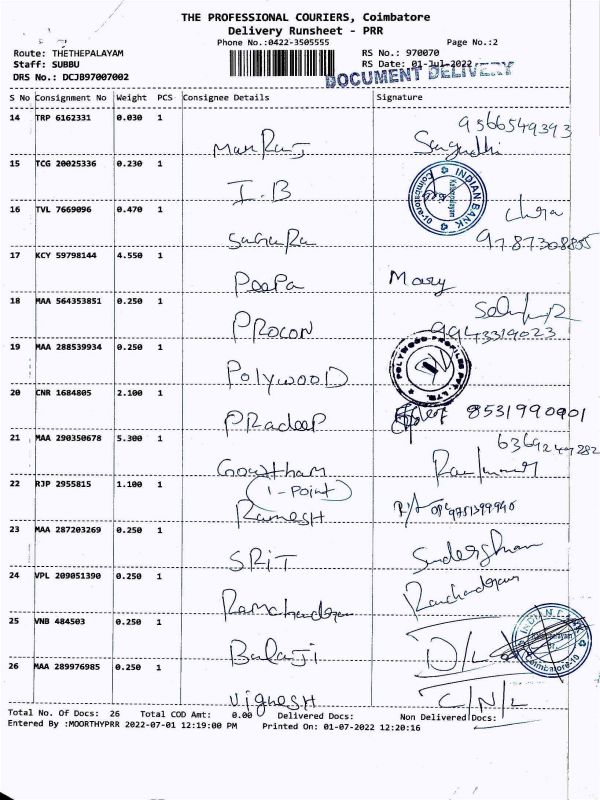 THE PROFESSIONAL COURIERS, Coimbatore
Delivery Runsheet - PRR
Phone No.:0422-3505555 Page No.:2
Route: THETHEPALAYAM RS No.: 970070
Staff: SUBBU RS Date: 01-Jul-2022
DRS No.: DCJB97007002 DOCUMENT DELIVERY
S No Consignment No Weight PCS Consignee Details Signature
14 TRP 6162331 0.030 1
9566549393
Manraj
15 TCG 20025336 0.230 1
I.B INDIAN BANK
16 TVL 7669096 0.470 1
9787308855
17 KCY 59798144 4.550 1
Peepa Mary
18 MAA 564353851 0.250 1
PROCON 9943319023
19 MAA 288539934 0.250 1
POLYWOOD POLYWOOD PROFILES PVT. LTD.
20 CNR 1684805 2.100 1
PRadeep 8531990901
21 MAA 290350678 5.300 1
6369249282
Gowtham
22 RJP 2955815 1.100 1
(1-Point)
Ramesh 9751399940
23 MAA 287203269 0.250 1
SRIT
24 VPL 209051390 0.250 1
Ramchandran
25 VNB 484503 0.250 1
INDIAN BANK
Balaji D/L
26 MAA 289976985 0.250 1
Vignesh C/N/L
Total No. Of Docs: 26 Total COD Amt: 0.00 Delivered Docs: Non Delivered Docs:
Entered By :MOORTHYPRR 2022-07-01 12:19:00 PM Printed On: 01-07-2022 12:20:16